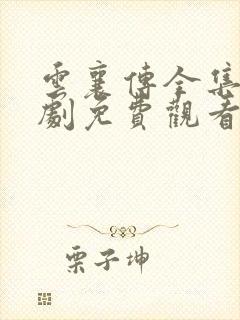 雲襄傳全集
劇免費觀看
栗子坤